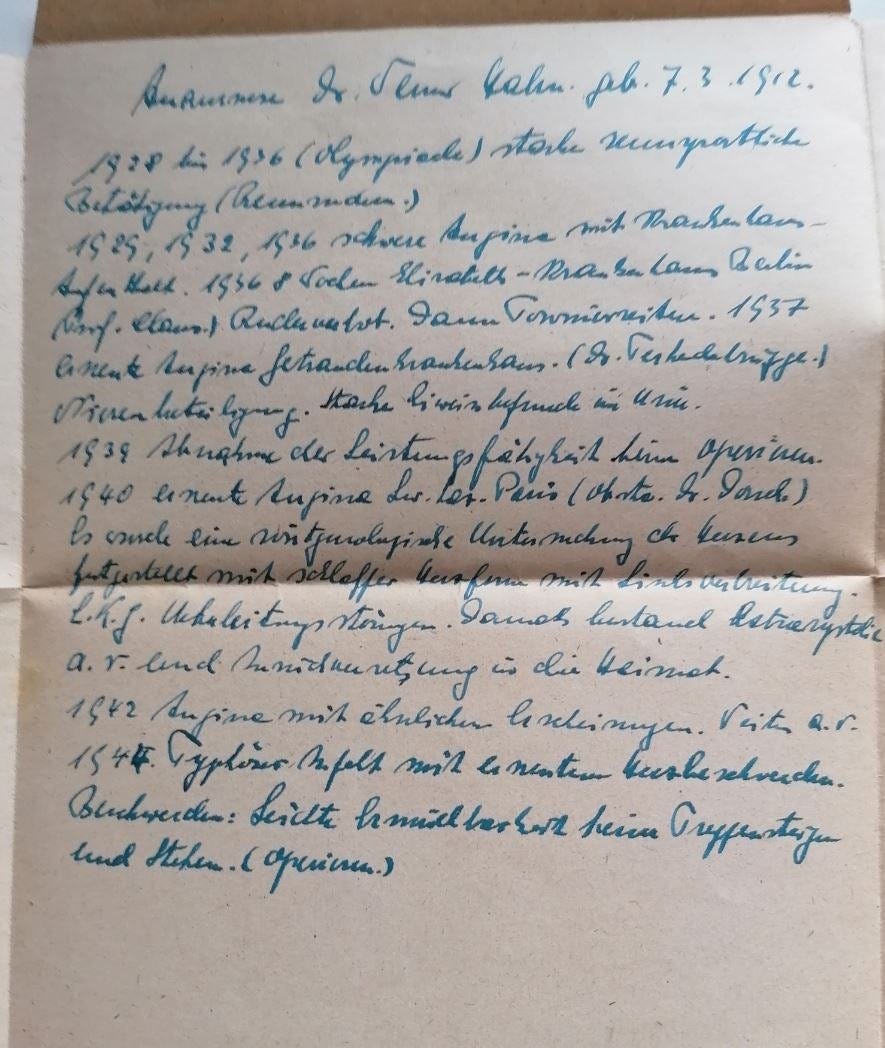 Anamnese Dr. Werner Hahn. geb. 7.3.1912.
1928 bis 1936 (Olympiade) starke rennsportliche
Betätigung (Rennrudern.)
1929, 1932, 1936 schwere Angina mit Krankenhaus-
Aufenthalt. 1936 8 Wochen Elisabeth-Krankenhaus Berlin
Prof. Ruderverbot. Dann Tournierreiten. 1937
erneute Angina Getraudenkrankenhaus. (Dr.
Nierenbeteiligung. Starke Eiweisbefunde im Urin.
1939 Abnahme der Leistungsfähigkeit beim Operieren.
1940 erneute Angina Lw. Laz. Paris (Obsta. Dr.
Es wurde eine röntgenologische Untersuchung des Herzens
festgestellt mit schlaffer Herzform mit Linksverbreitung.
E.K.G. Uberleitungsstörungen. Damals bestand Extrasystolie
a. v. und Zurückversetzung in die Heimat.
1942 Angina mit ähnlichen Erscheinungen. Weiter a. v.
1944. Typhöser Infekt mit erneuten Herzbeschwerden.
Beschwerden: Leichte Ermüdbarkeit beim Treppensteigen
und Stehen. (Operieren.)